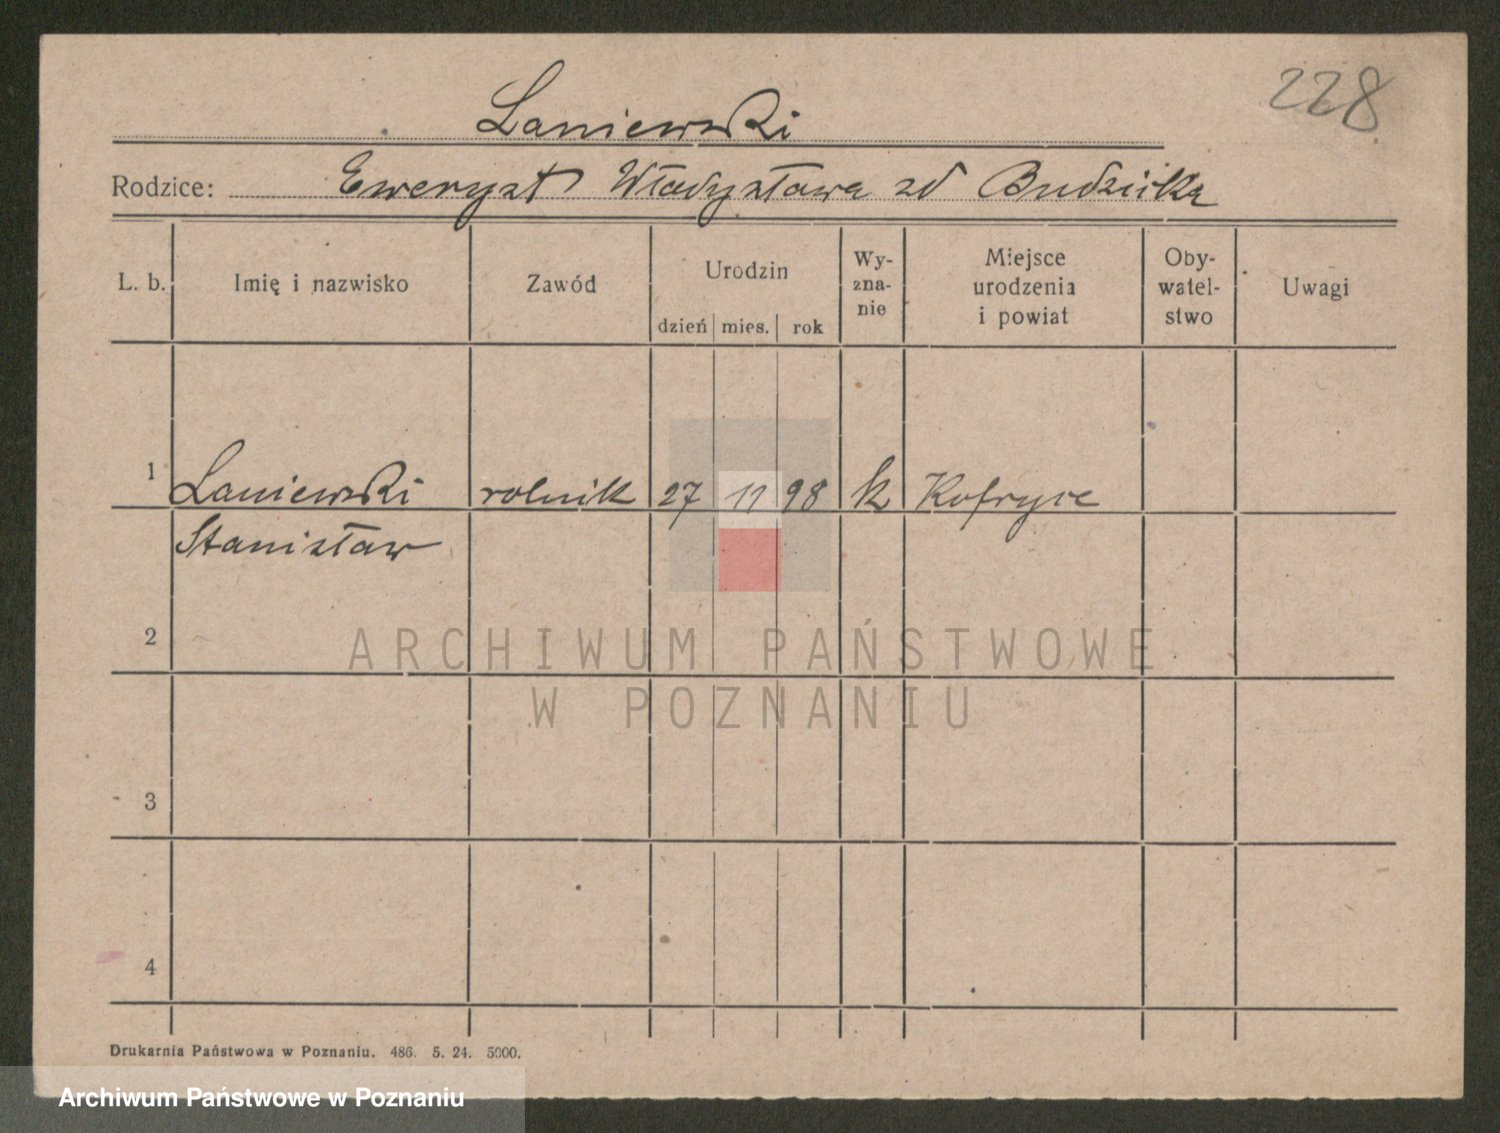 228
Laniewski
Rodzice: Eweryst Władysława zd Budzicka
L. b. Imię i nazwisko Zawód Urodzin dzień mies. rok Wy-zna-nie Miejsce urodzenia i powiat Oby-watel-stwo Uwagi
1 Laniewski rolnik 27 11 98 k
Stanisław
2
3
4
ARCHIWUM PAŃSTWOWE
W POZNANIU
Drukarnia Państwowa w Poznaniu. 486. 5. 24. 5000.
Archiwum Państwowe w Poznaniu